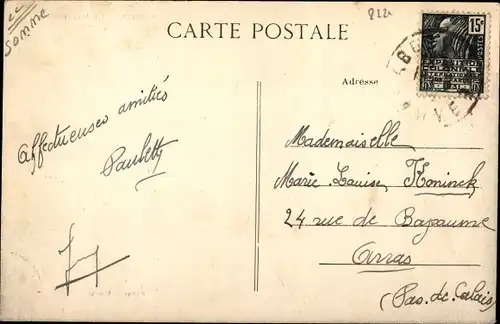 Somme
822
CARTE POSTALE
15c
POSTES
EXPOSITION
COLONIALE
INTERNATIONALE
Adresse
Affectueuses amitiés
Paulette
Mademoiselle
Marie-Louise Koninck
24 rue de Bapaume
Arras
(Pas-de-Calais)